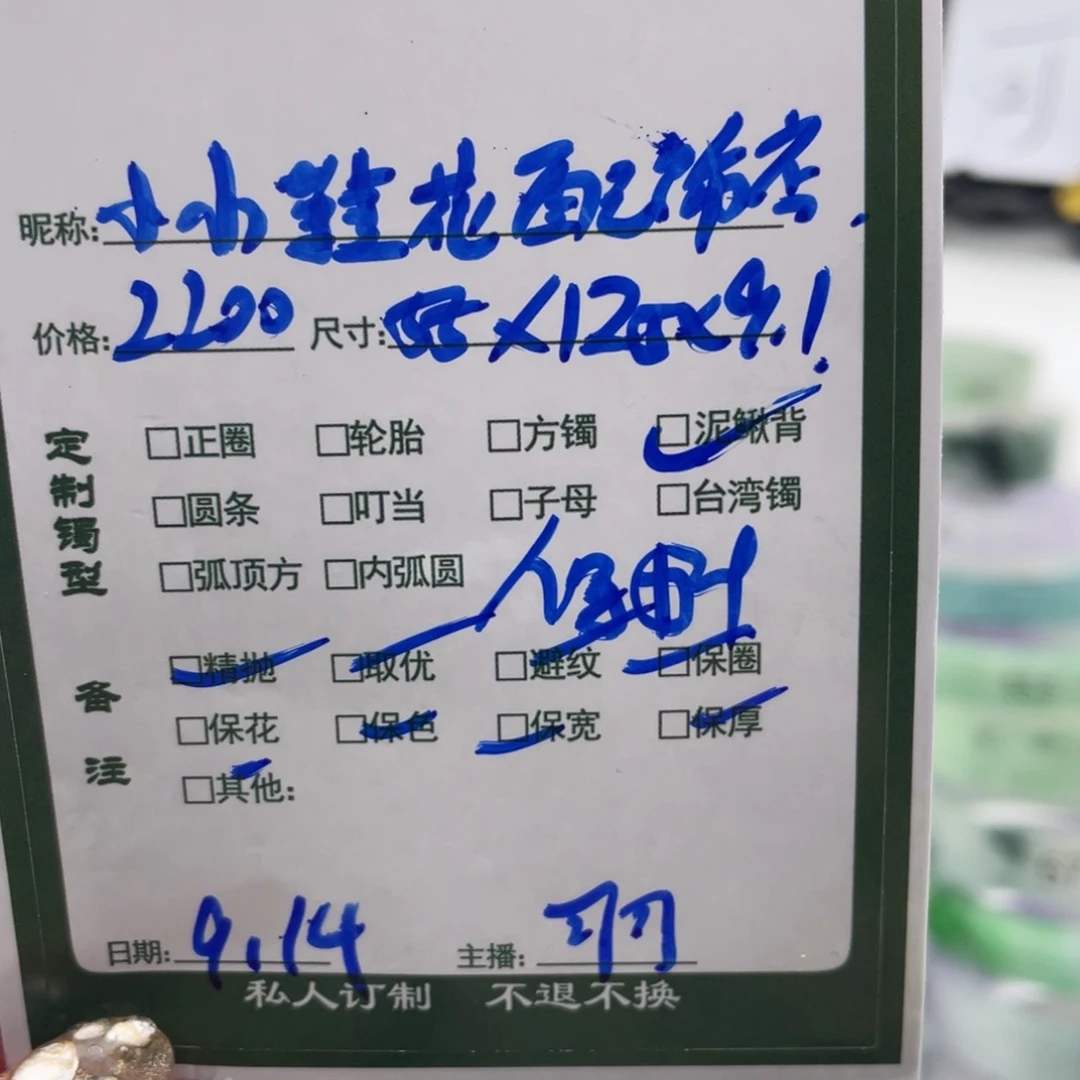 昵称: 小小鞋花配饰店.
价格: 2200 尺寸: ×12×9.1!
定制镯型
□正圈 □轮胎 □方镯 □泥鳅背
□圆条 □叮当 □子母 □台湾镯
□弧顶方 □内弧圆
备注
□精抛 □取优 □避纹 □保圈
□保花 □保色 □保宽 □保厚
□其他:
日期: 9.14 主播: 羽
私人订制 不退不换